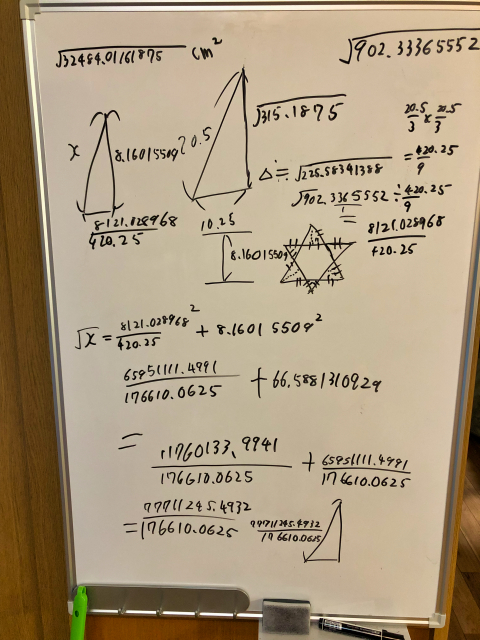 √32484.01161875 cm²
√902.33365552
√315.1875
20.5/3 × 20.5/3
= 420.25/9
x
8.16015509
20.5
△≒√225.58341388
√902.3365552 ÷ 420.25/9
8121.028968/420.25
10.25
8.16015509
= 8121.028968/420.25
√x = 8121.028968/420.25² + 8.16015509²
65951111.4991/176610.0625 + 66.5881310929
= 11760133.9941/176610.0625 + 65951111.4991/176610.0625
= 77711245.4932/176610.0625
77711245.4932/176610.0625